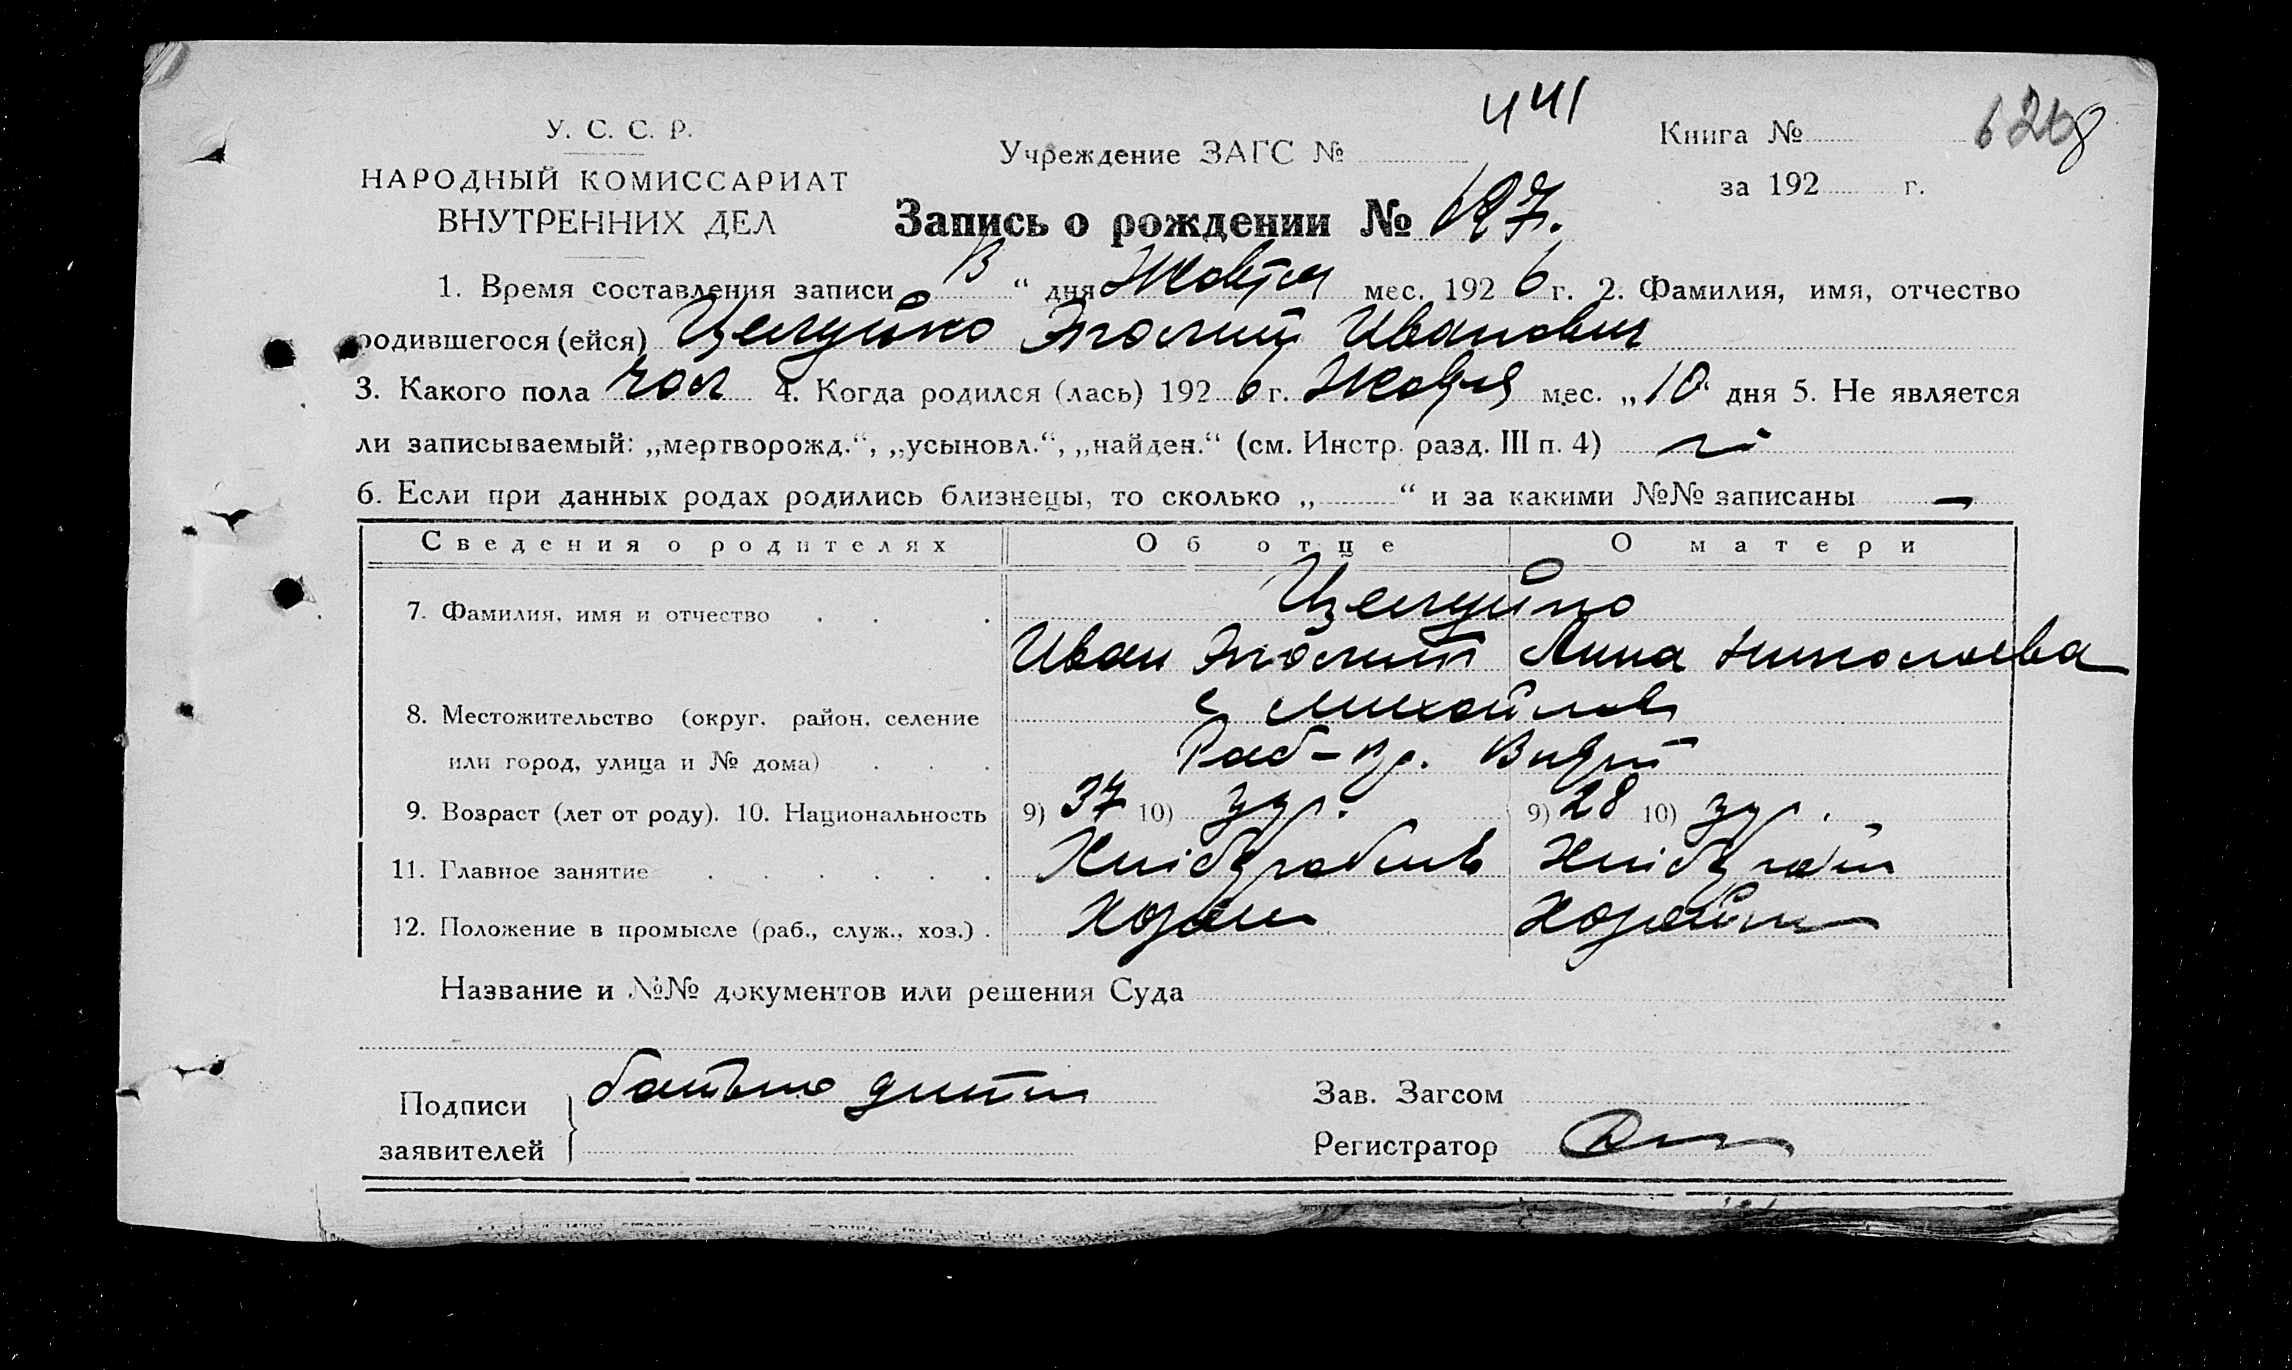 441
У. С. С. Р. Учреждение ЗАГС № Книга №
НАРОДНЫЙ КОМИССАРИАТ за 192 г.
ВНУТРЕННИХ ДЕЛ Запись о рождении № 197.
1. Время составления записи 13 “ дня Жовтня мес. 1926 г. 2. Фамилия, имя, отчество
родившегося (ейся) Целуйко Иванович
3. Какого пола чол 4. Когда родился (лась) 1926 г. Жовтня мес. „10“ дня 5. Не является
ли записываемый: „мертворожд.“, „усыновл.“, „найден.“ (см. Инстр. разд. III п. 4) ні
6. Если при данных родах родились близнецы, то сколько „ “ и за какими №№ записаны —
Сведения о родителях Об отце О матери
7. Фамилия, имя и отчество Целуйко
Иван Анна Николаева
8. Местожительство (округ, район, селение с
или город, улица и № дома)
9. Возраст (лет от роду). 10. Национальность 9) 37 10) 9) 28 10)
11. Главное занятие Хлібороб
12. Положение в промысле (раб., служ., хоз.) Хозяин Хозяйка
Название и №№ документов или решения Суда
Подписи батько дити Зав. Загсом
заявителей Регистратор